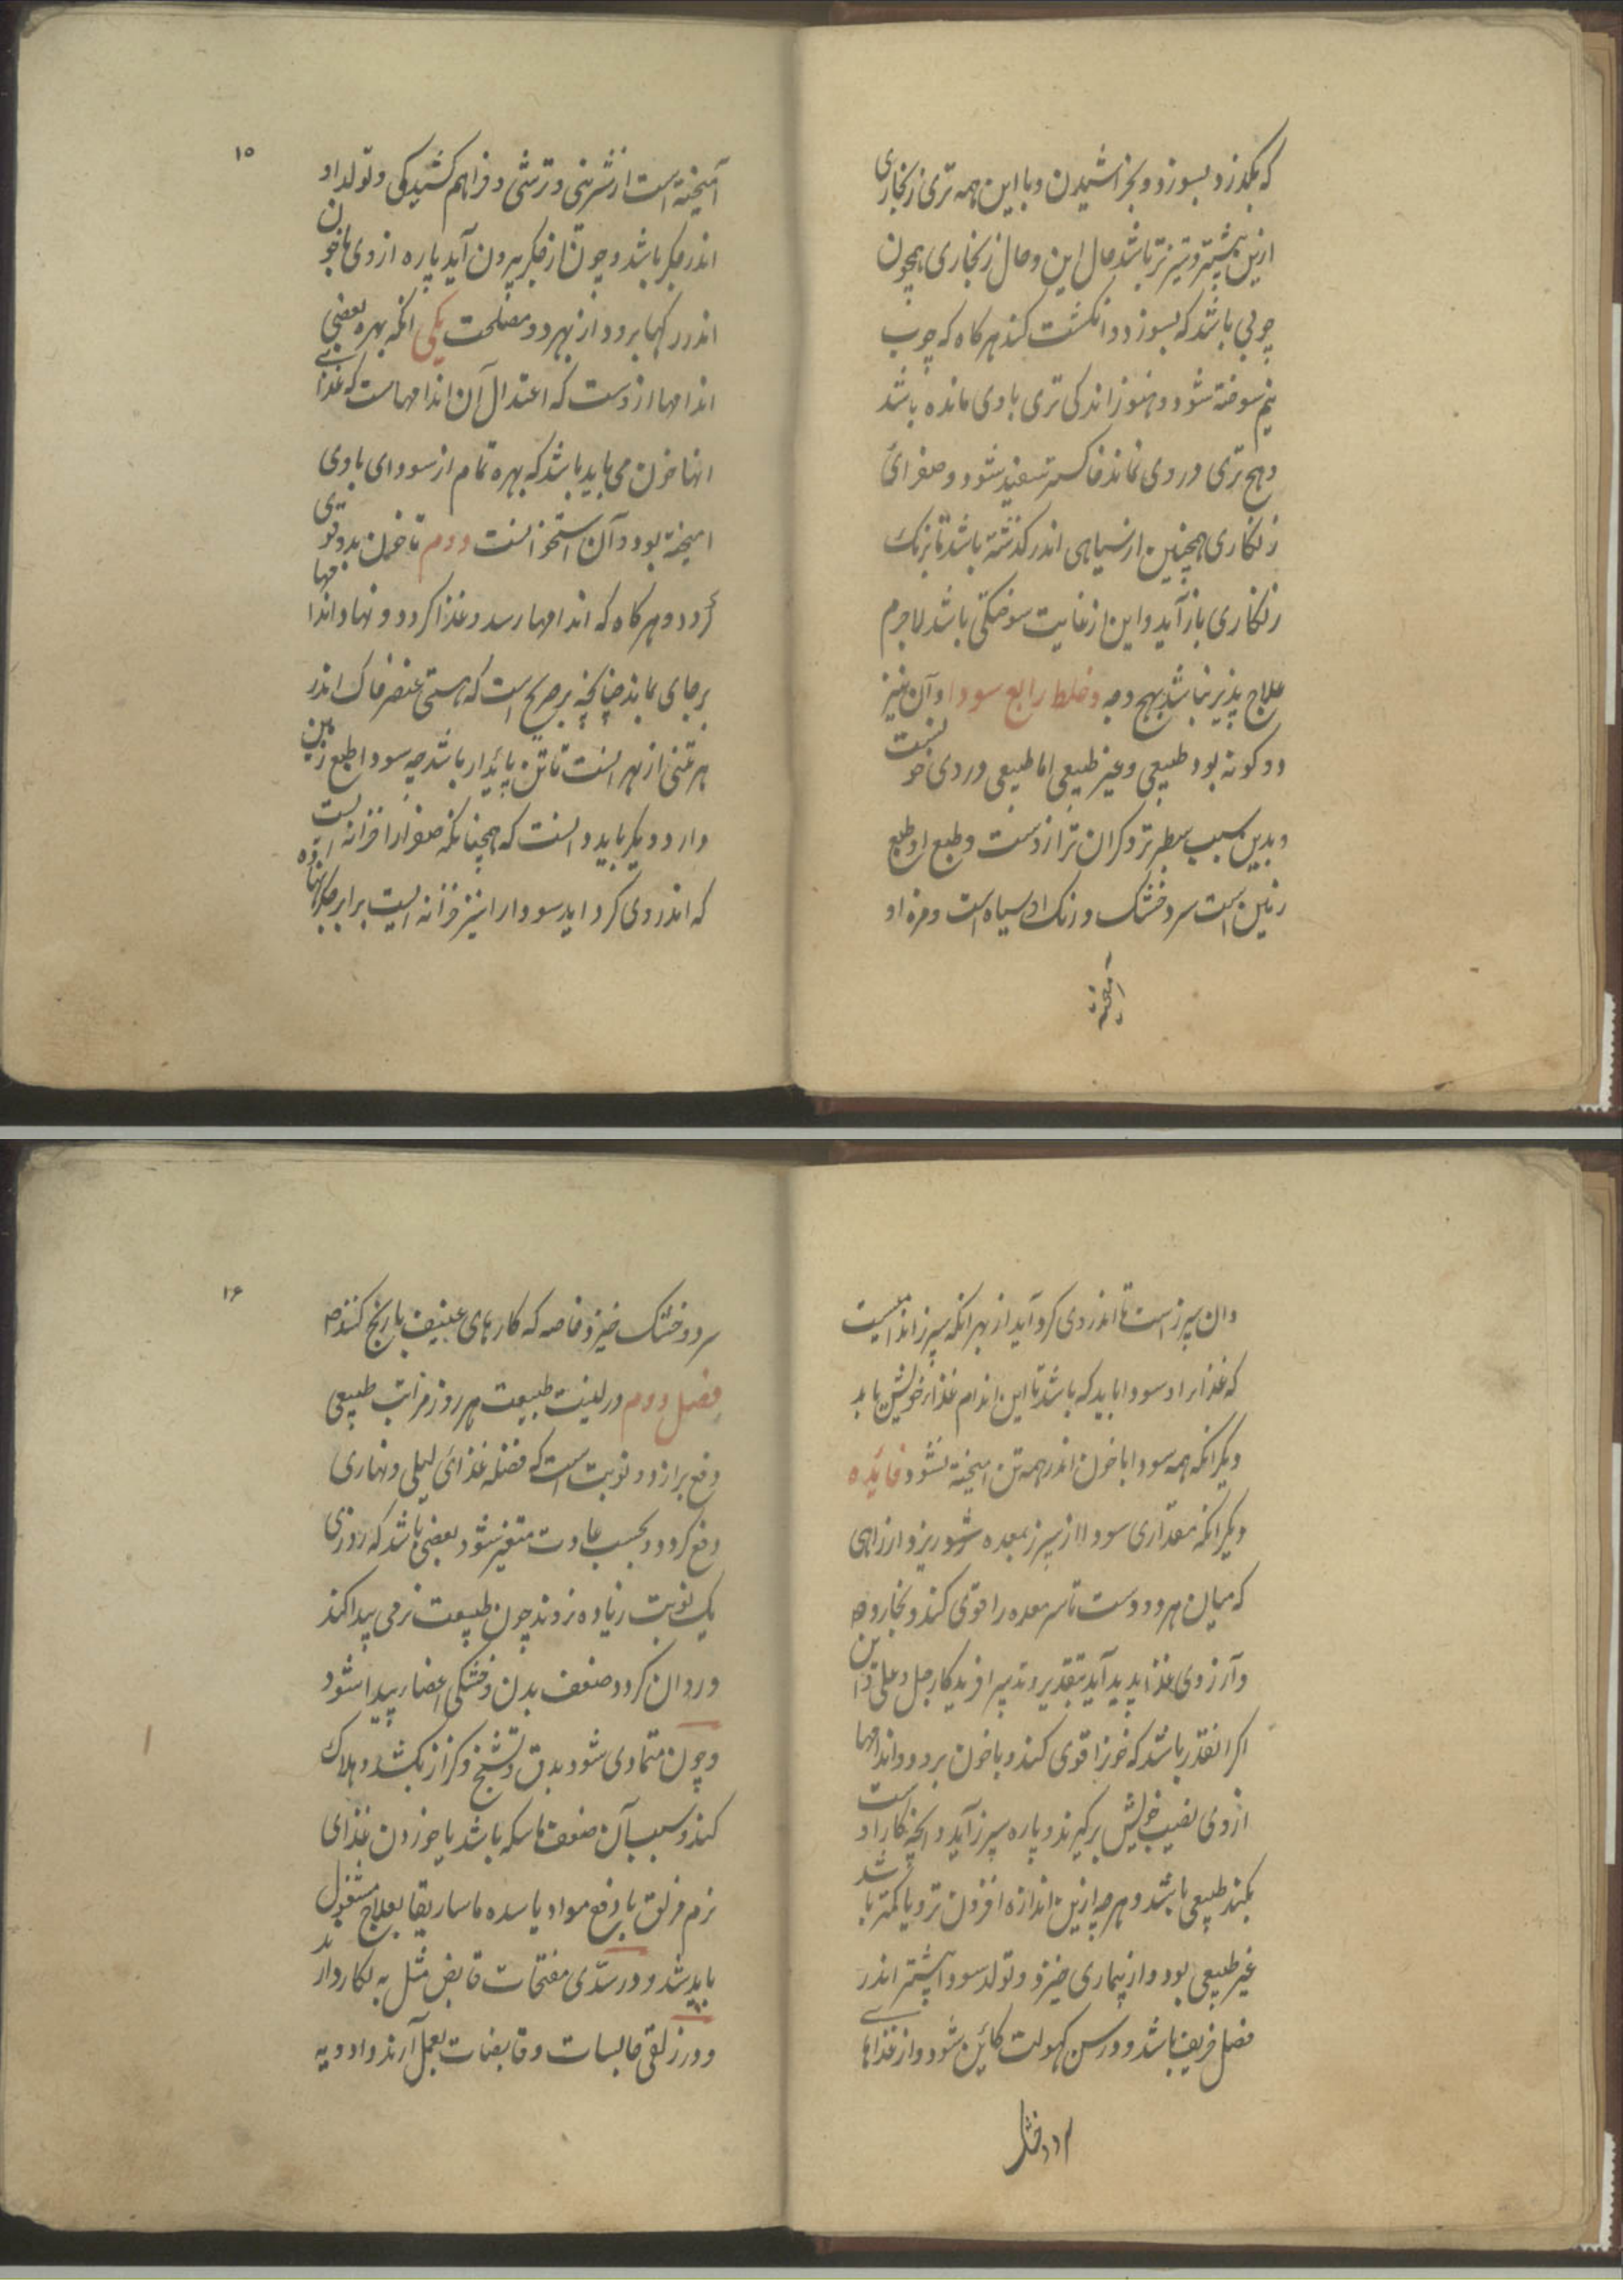 که بگذرد و بسوزد و بخراشیدن و با این همه تری زنجاری
ازین بیشتر و تیزتر باشد حال این و حال زنجاری همچون
چوبی باشد که بسوزد و انکشت کند هرکاه که چوب
نیم سوخته شود و هنوز اندکی تری با وی مانده باشد
و هیچ تری در وی نماند خاکستر سفید شود و صفرائ
زنکاری همچنین از سیاهی اندر کذشته باشد تا برنک
زنکاری باز آید و این از غایت سوختکی باشد لاجرم
علاج پذیر نباشد بهیچ وجه و خلط رابع سودا و آن نیز
دو کونه بود طبیعی و غیر طبیعی اما طبیعی دردی خونست
و بدین سبب سطبرتر و کران تر ازوست و طبع او طبع
زمین است سرد و خشک و رنک او سیاه است و مزه او
آمیخته
۱۵
آمیخته است از شیرینی و ترشی و فراهم کشیدکی و تولد او
اندر جکر باشد و چون از جکر بیرون آید پاره از وی با خون
اندر رکها برود از بهر دو مصلحت یکی انکه بهره بعضی
اندامها ازوست که اعتدال آن اندامهاست که غذای
انها خون می باید باشد که بهره تمام از سودای با وی
امیخته بود و آن استخوانست دوم تا خون بدو قوی
کردد و هرکاه که اندامها رسد و غذا کردد و نهاد اندامها
بر جای بماند چنانچه بر صریح است که هستی عنصر خاک اندر
هر تنی از بهر انست تا تن پائدار باشد چه سودا طبع زمین
دارد و دیکر باید دانست که همچنانکه صفرا را خزانه ایست
که اندر وی کرد اید سودا را نیز خزانه ایست برابر جکر نهاده
وان سپرز است تا اندر وی کرد آید از بهر انکه سپرز اندامیست
که غذا را او سودا باید که باشد تا این اندام غذاء خویش یابد
دیکر انکه همه سودا با خون اندر همه تن امیخته نشود فائده
دیکر انکه مقداری سودا از سپرز بمعده شور ریزد از راهی
که میان هر دو دوست تا سر معده را قوی کند و بخارد
و آرزوی غذا پدید آید بتقدیر و تدبیر افریدکار جل و علی و این
اکر انقدر باشد که خون را قوی کند و با خون برود و اندامها
از وی نصیب خویش برکیرند و پاره سپرز آید و انچه کار اوست
بکند طبیعی باشد و هرچه ازین اندازه افزون تر و یا کمتر باشد
غیر طبیعی بود و از بیماری خیزد و تولد سودا بیشتر اندر
فصل خریف باشد و در سن کهولت کائن شود و از غذاهای
سرد و خشک
۱۶
سرد و خشک خیزد خاصه که کارهای عنیف با رنج کنند
فصل دوم در لینت طبیعت هر روز مراتب طبیعی
دفع براز دو نوبت است که فضله غذائ لیلی و نهاری
دفع کردد و بحسب عادت متغیر شود بعضی باشد که روزی
یک نوبت زیاده نروند چون طبیعت نرمی پیدا کند
و روان کردد ضعف بدن و خشکی اعضا پیدا شود
و چون متمادی شود بدق و تشنج و کزاز بکشد و هلاک
کند و سبب آن ضعف ماسکه باشد یا خوردن غذای
نرم مزلق یا دفع مواد یا سده ماساریقا بعلاج مشغول
باید شد و در سدی مفتحات قابض مثل به بکار دارند
و در زلقی حابسات و قابضات بعمل آرند و ادویه